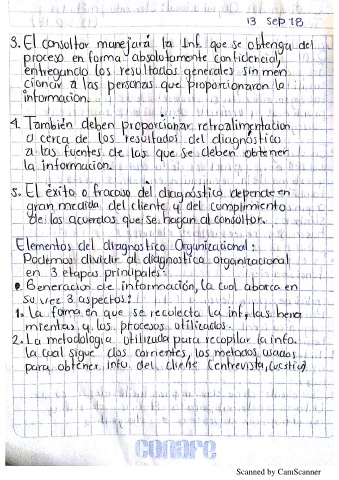 13 Sep 18
3. El consultor manejará la Inf. que se obtenga del
proceso en forma absolutamente confidencial,
entregando los resultados generales sin men
cionar a las personas que proporcionaron la
informacion.
4. También deben proporcionar retroalimentacion
a cerca de los resultados del diagnóstico
a las fuentes de las que se deben obtener
la informacion.
5. El éxito o fracaso del diagnóstico depende en
gran medida del cliente y del cumplimiento
de los acuerdos que se hagan al consultor.
Elementos del diagnostico Organizacional:
Podemos dividir al diagnostico organizacional
en 3 etapas principales:
Generacion de información, la cual abarca en
su vez 3 aspectos:
1. La forma en que se recolecta la inf, las herra
mientas y los procesos utilizados.
2. La metodología utilizada para recopilar la info.
la cual sigue dos corrientes, los metodos usados
para obtener info del cliente (entrevista, cuestio)
conafe
Scanned by CamScanner